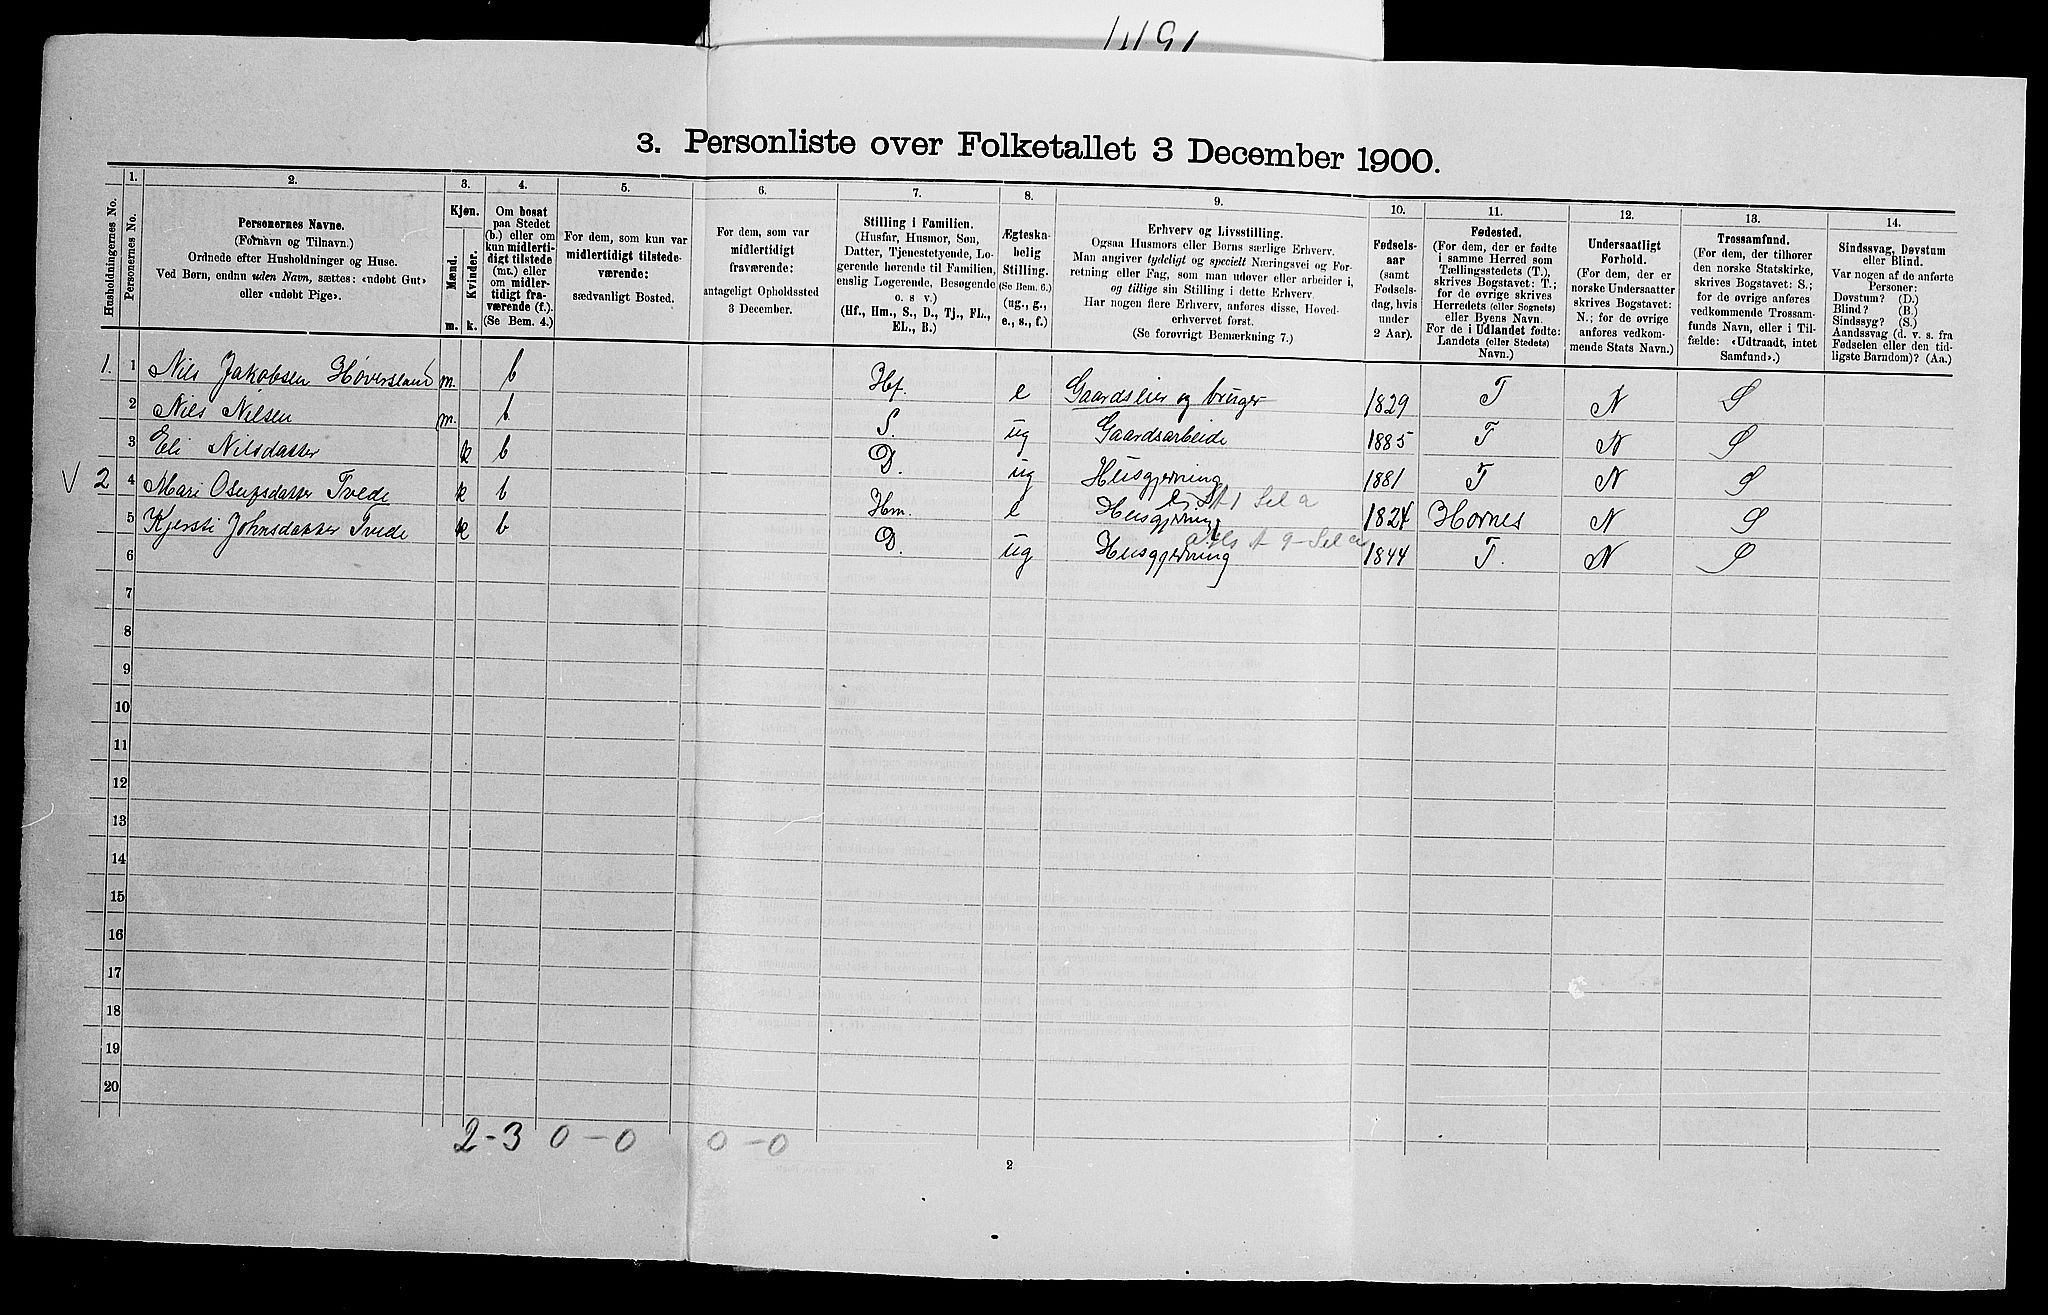 3. Personliste over Folketallet 3 December 1900.
1. 2. 3. 4. 5. 6. 7. 8. 9. 10. 11. 12. 13. 14.
Husholdningernes No.
Personernes No.
Personernes Navne.
(Fornavn og Tilnavn.)
Ordnede efter Husholdninger og Huse.
Ved Børn, endnu uden Navn, sættes: «udøbt Gut»
eller «udøbt Pige».
Kjøn.
Mænd.
Kvinder.
m. k.
Om bosat
paa Stedet
(b.) eller om
kun midlerti-
digt tilstede
(mt.) eller
om midler-
tidigt fra-
værende (f.).
(Se Bem. 4.)
For dem, som kun var
midlertidigt tilstede-
værende:
sædvanligt Bosted.
For dem, som var
midlertidigt
fraværende:
antageligt Opholdssted
3 December.
Stilling i Familien.
(Husfar, Husmor, Søn,
Datter, Tjenestetyende, Lo-
gerende hørende til Familien,
enslig Logerende, Besøgende
o. s v.)
(Hf., Hm., S., D., Tj., FL.,
EL., B.)
Ægteska-
belig
Stilling.
(Se Bem. 6.)
(ug., g.,
e., s., f.)
Erhverv og Livsstilling.
Ogsaa Husmors eller Børns særlige Erhverv.
Man angiver tydeligt og specielt Næringsvei og For-
retning eller Fag, som man udøver eller arbeider i,
og tillige sin Stilling i dette Erhverv.
Har nogen flere Erhverv, anføres disse, Hoved-
erhvervet først.
(Se forøvrigt Bemærkning 7.)
Fødsels-
aar
(samt
Fødsels-
dag, hvis
under
2 Aar).
Fødested.
(For dem, der er fødte
i samme Herred som
Tællingsstedets (T.),
skrives Bogstavet: T.;
for de øvrige skrives
Herredets (eller Sognets)
eller Byens Navn.
For de i Udlandet fødte:
Landets (eller Stedets)
Navn.)
Undersaatligt
Forhold.
(For dem, der er
norske Undersaatter
skrives Bogstavet:
N.; for de øvrige
anføres vedkom-
mende Stats Navn.)
Trossamfund.
(For dem, der tilhører
den norske Statskirke,
skrives Bogstavet: S.;
for de øvrige anføres
vedkommende Trossam-
funds Navn, eller i Til-
fælde: «Udtraadt, intet
Samfund».)
Sindssvag, Døvstum
eller Blind.
Var nogen af de anførte
Personer:
Døvstum? (D.)
Blind? (B.)
Sindssyg? (S.)
Aandssvag (d. v. s. fra
Fødselen eller den tid-
ligste Barndom)? (Aa.)
1. 1 Nils Jakobsen Høversland m. b Hf. e Gaardsleier og bruger 1829 T N S
2 Nils Nilsen m. b S. ug Gaardsarbeide 1885 T N S
3 Eli Nilsdatter k b D. ug Husgjerning 1881 T N S
V 2 4 Mari Osufsdatter Tvede k b Hm. e Husgjerning 1824 Hornes N S
5 Kjersti Johnsdatter Tvede k b D. ug Husgjerning 1844 T. N S
6
7
8
9
10
11
12
13
14
15
16
17
18
19
20
2-3 0-0 0-0
2